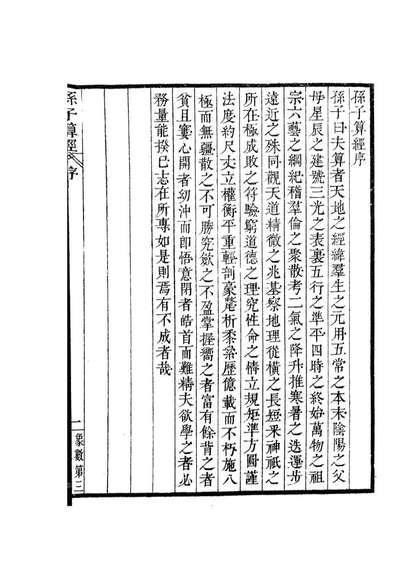 孫子算經序
孫子曰夫算者天地之經緯羣生之元用五常之本末陰陽之父
母星辰之建號三光之表裏五行之準平四時之終始萬物之祖
宗六藝之綱紀稽羣倫之聚散考二氣之降升推寒暑之迭運步
遠近之殊同觀天道精微之兆基察地理從橫之長短采神祇之
所在極成敗之符驗窮道德之理究性命之情立規矩準方圓謹
法度約尺丈立權衡平重輕剖豪氂析黍絫歷億載而不朽施八
極而無疆散之不可勝究斂之不盈掌握嚮之者富有餘背之者
貧且寠心開者幼沖而即悟意閉者皓首而難精夫欲學之者必
務量能揆己志在所專如是則焉有不成者哉
孫子算經 序
一 象數第三